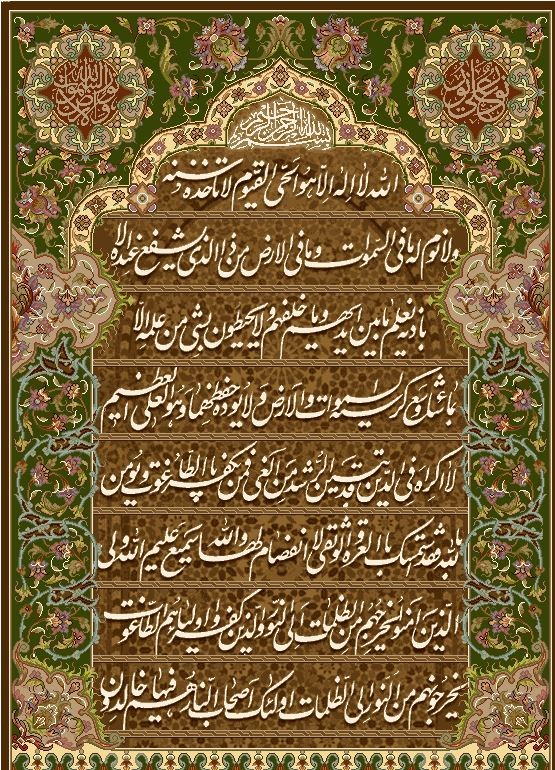 نور علی نور
الله نور السموات والارض
بسم الله الرحمن الرحیم
الله لا اله الا هو الحی القیوم لا تاخذه سنة
ولا نوم له ما فی السموات وما فی الارض من ذا الذی یشفع عنده الا
باذنه یعلم ما بین ایدیهم وما خلفهم ولا یحیطون بشی من علمه الا
بما شاء وسع کرسیه السموات والارض ولا یوده حفظهما وهو العلی العظیم
لا اکراه فی الدین قد تبین الرشد من الغی فمن یکفر بالطاغوت ویومن
بالله فقد استمسک بالعروة الوثقی لا انفصام لها والله سمیع علیم الله ولی
الذین امنوا یخرجهم من الظلمات الی النور والذین کفروا اولیاوهم الطاغوت
یخرجونهم من النور الی الظلمات اولئک اصحاب النار هم فیها خالدون